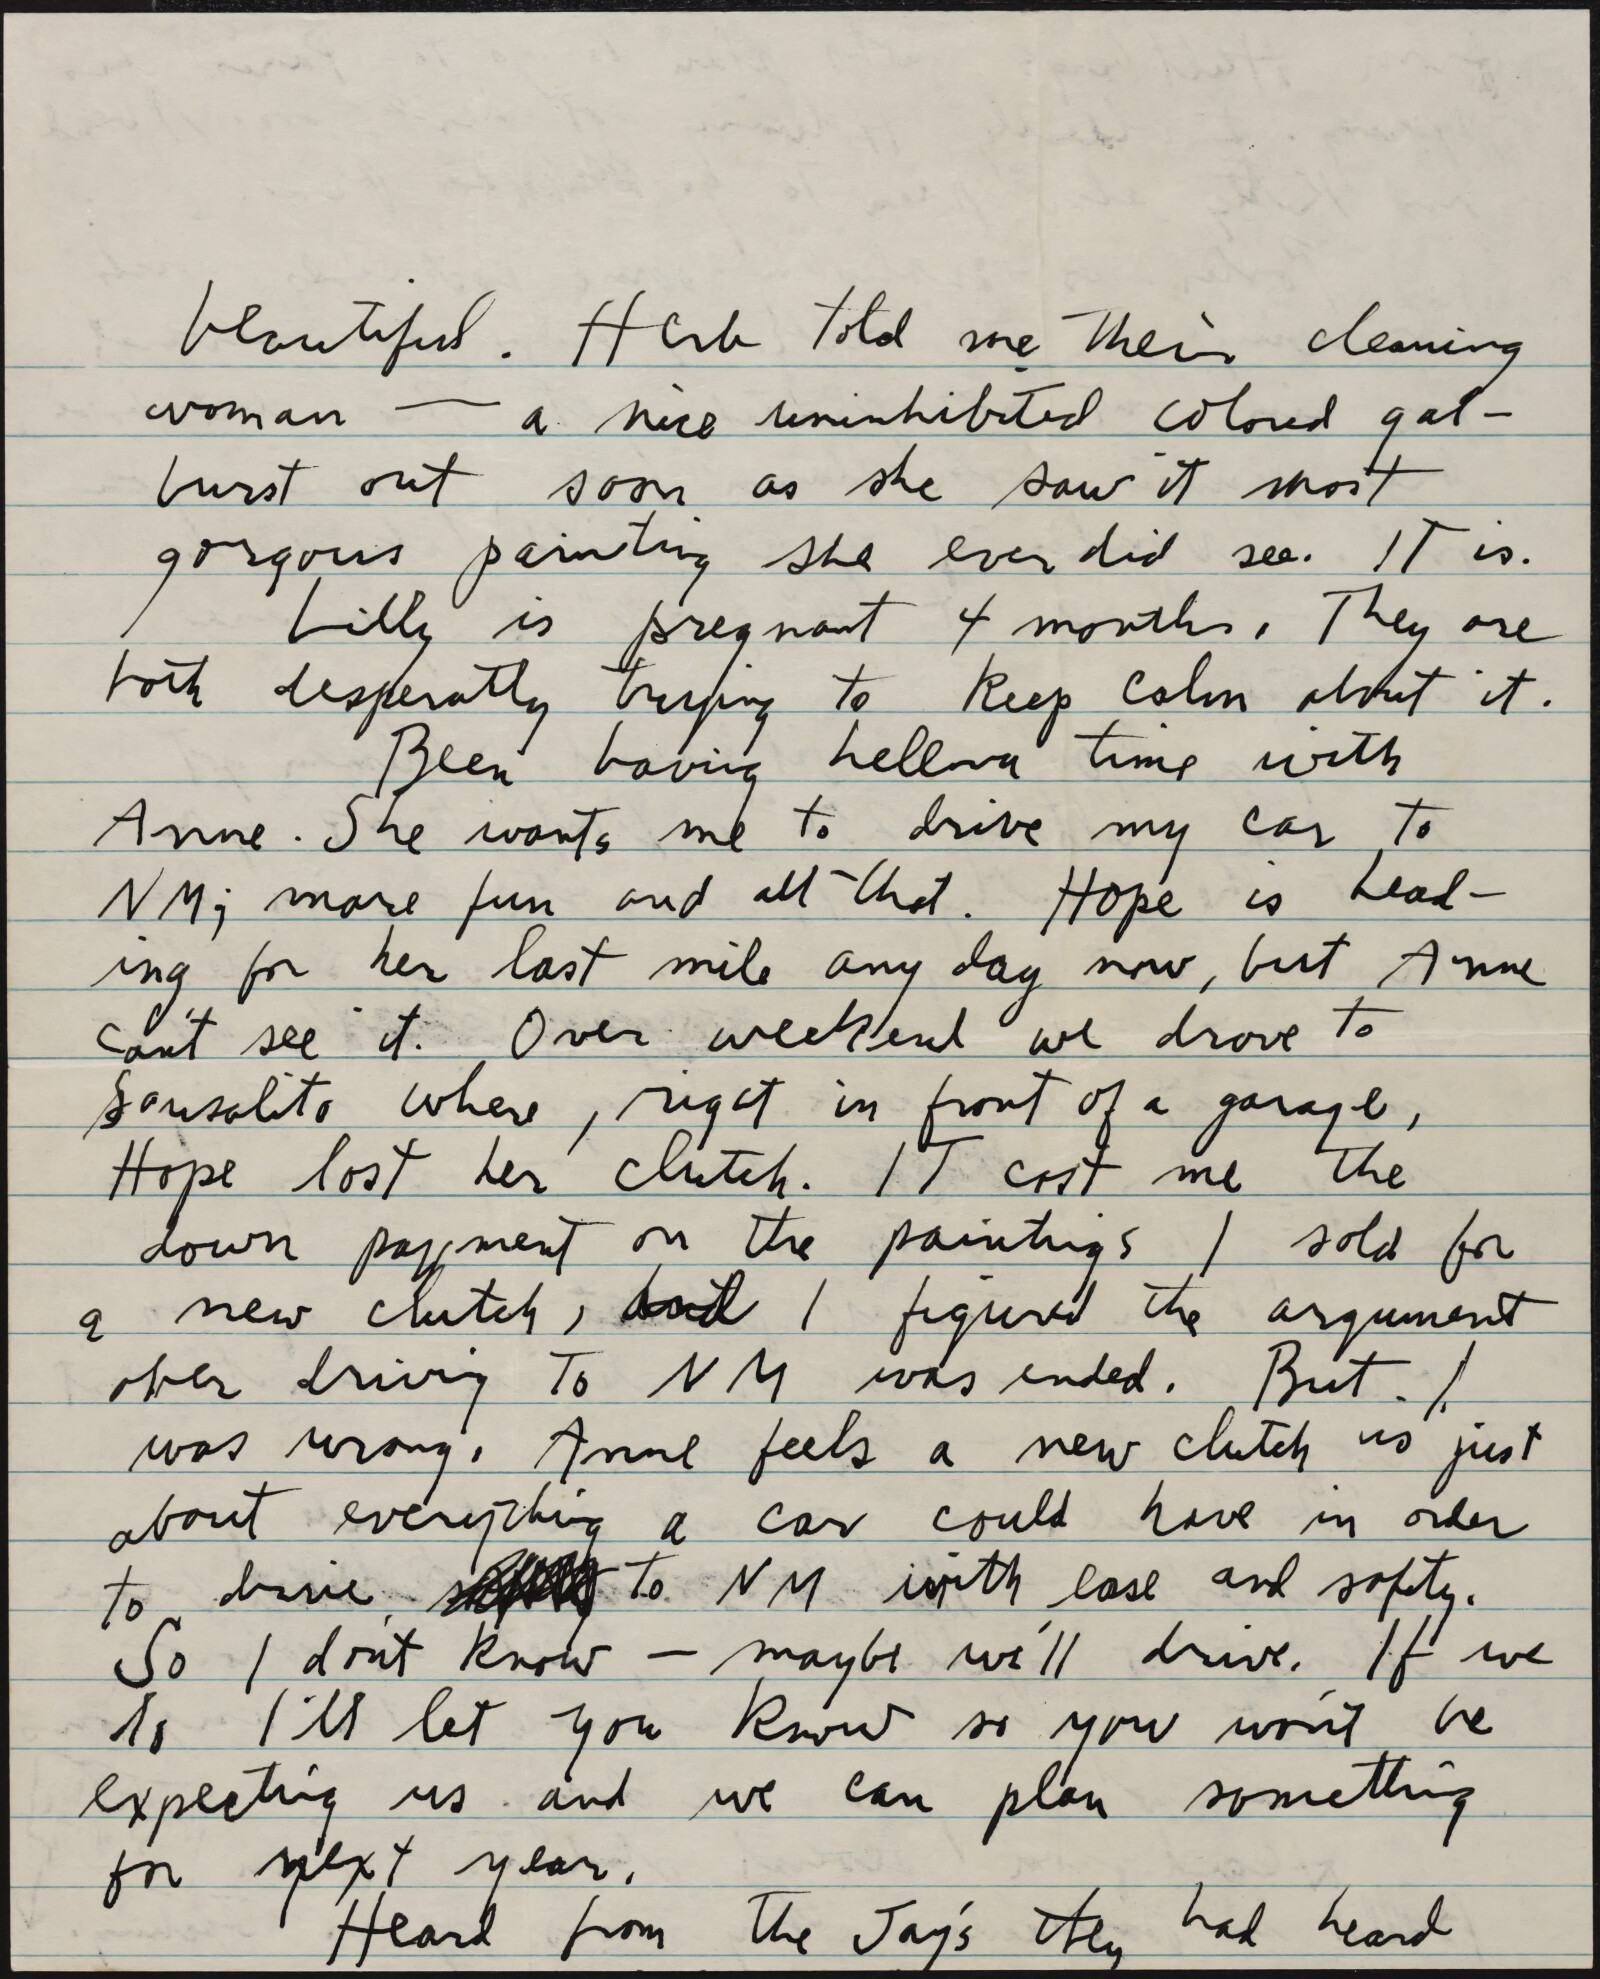 beautiful. Herb told me their cleaning
woman — a nice uninhibited colored gal –
burst out soon as she saw it most
gorgous painting she ever did see. IT is.
Lilly is pregnant 4 months. They are
both desperatly trying to keep calm about it.
Been having hellova time with
Anne. She wants me to drive my car to
NM; more fun and all that. Hope is head-
ing for her last mile any day now, but Anne
can't see it. Over weekend we drove to
Sausalito where, right in front of a garage,
Hope lost her clutch. IT cost me the
down payment on the paintings I sold for
a new clutch, and I figured the argument
over driving To NM was ended. But I
was wrong. Anne feels a new clutch is just
about everything a car could have in order
to drive to NM with ease and safety.
So I don't know — maybe we'll drive. If we
do I'll let you know so you won't be
expecting us and we can plan something
for next year.
Heard from the Jay's they had heard